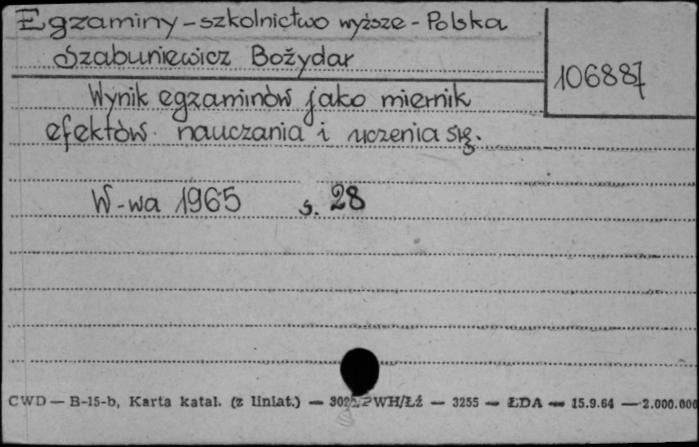 Egzaminy - szkolnictwo wyższe - Polska
Szabuniewicz Bożydar
106887
Wynik egzaminów jako miernik
efektów nauczania i uczenia się.
W-wa 1965 s. 28
CWD — B-15-b, Karta katal. (z liniat.) — PWH/Łź — 3255 — ŁDA — 15.9.64 — 2.000.000